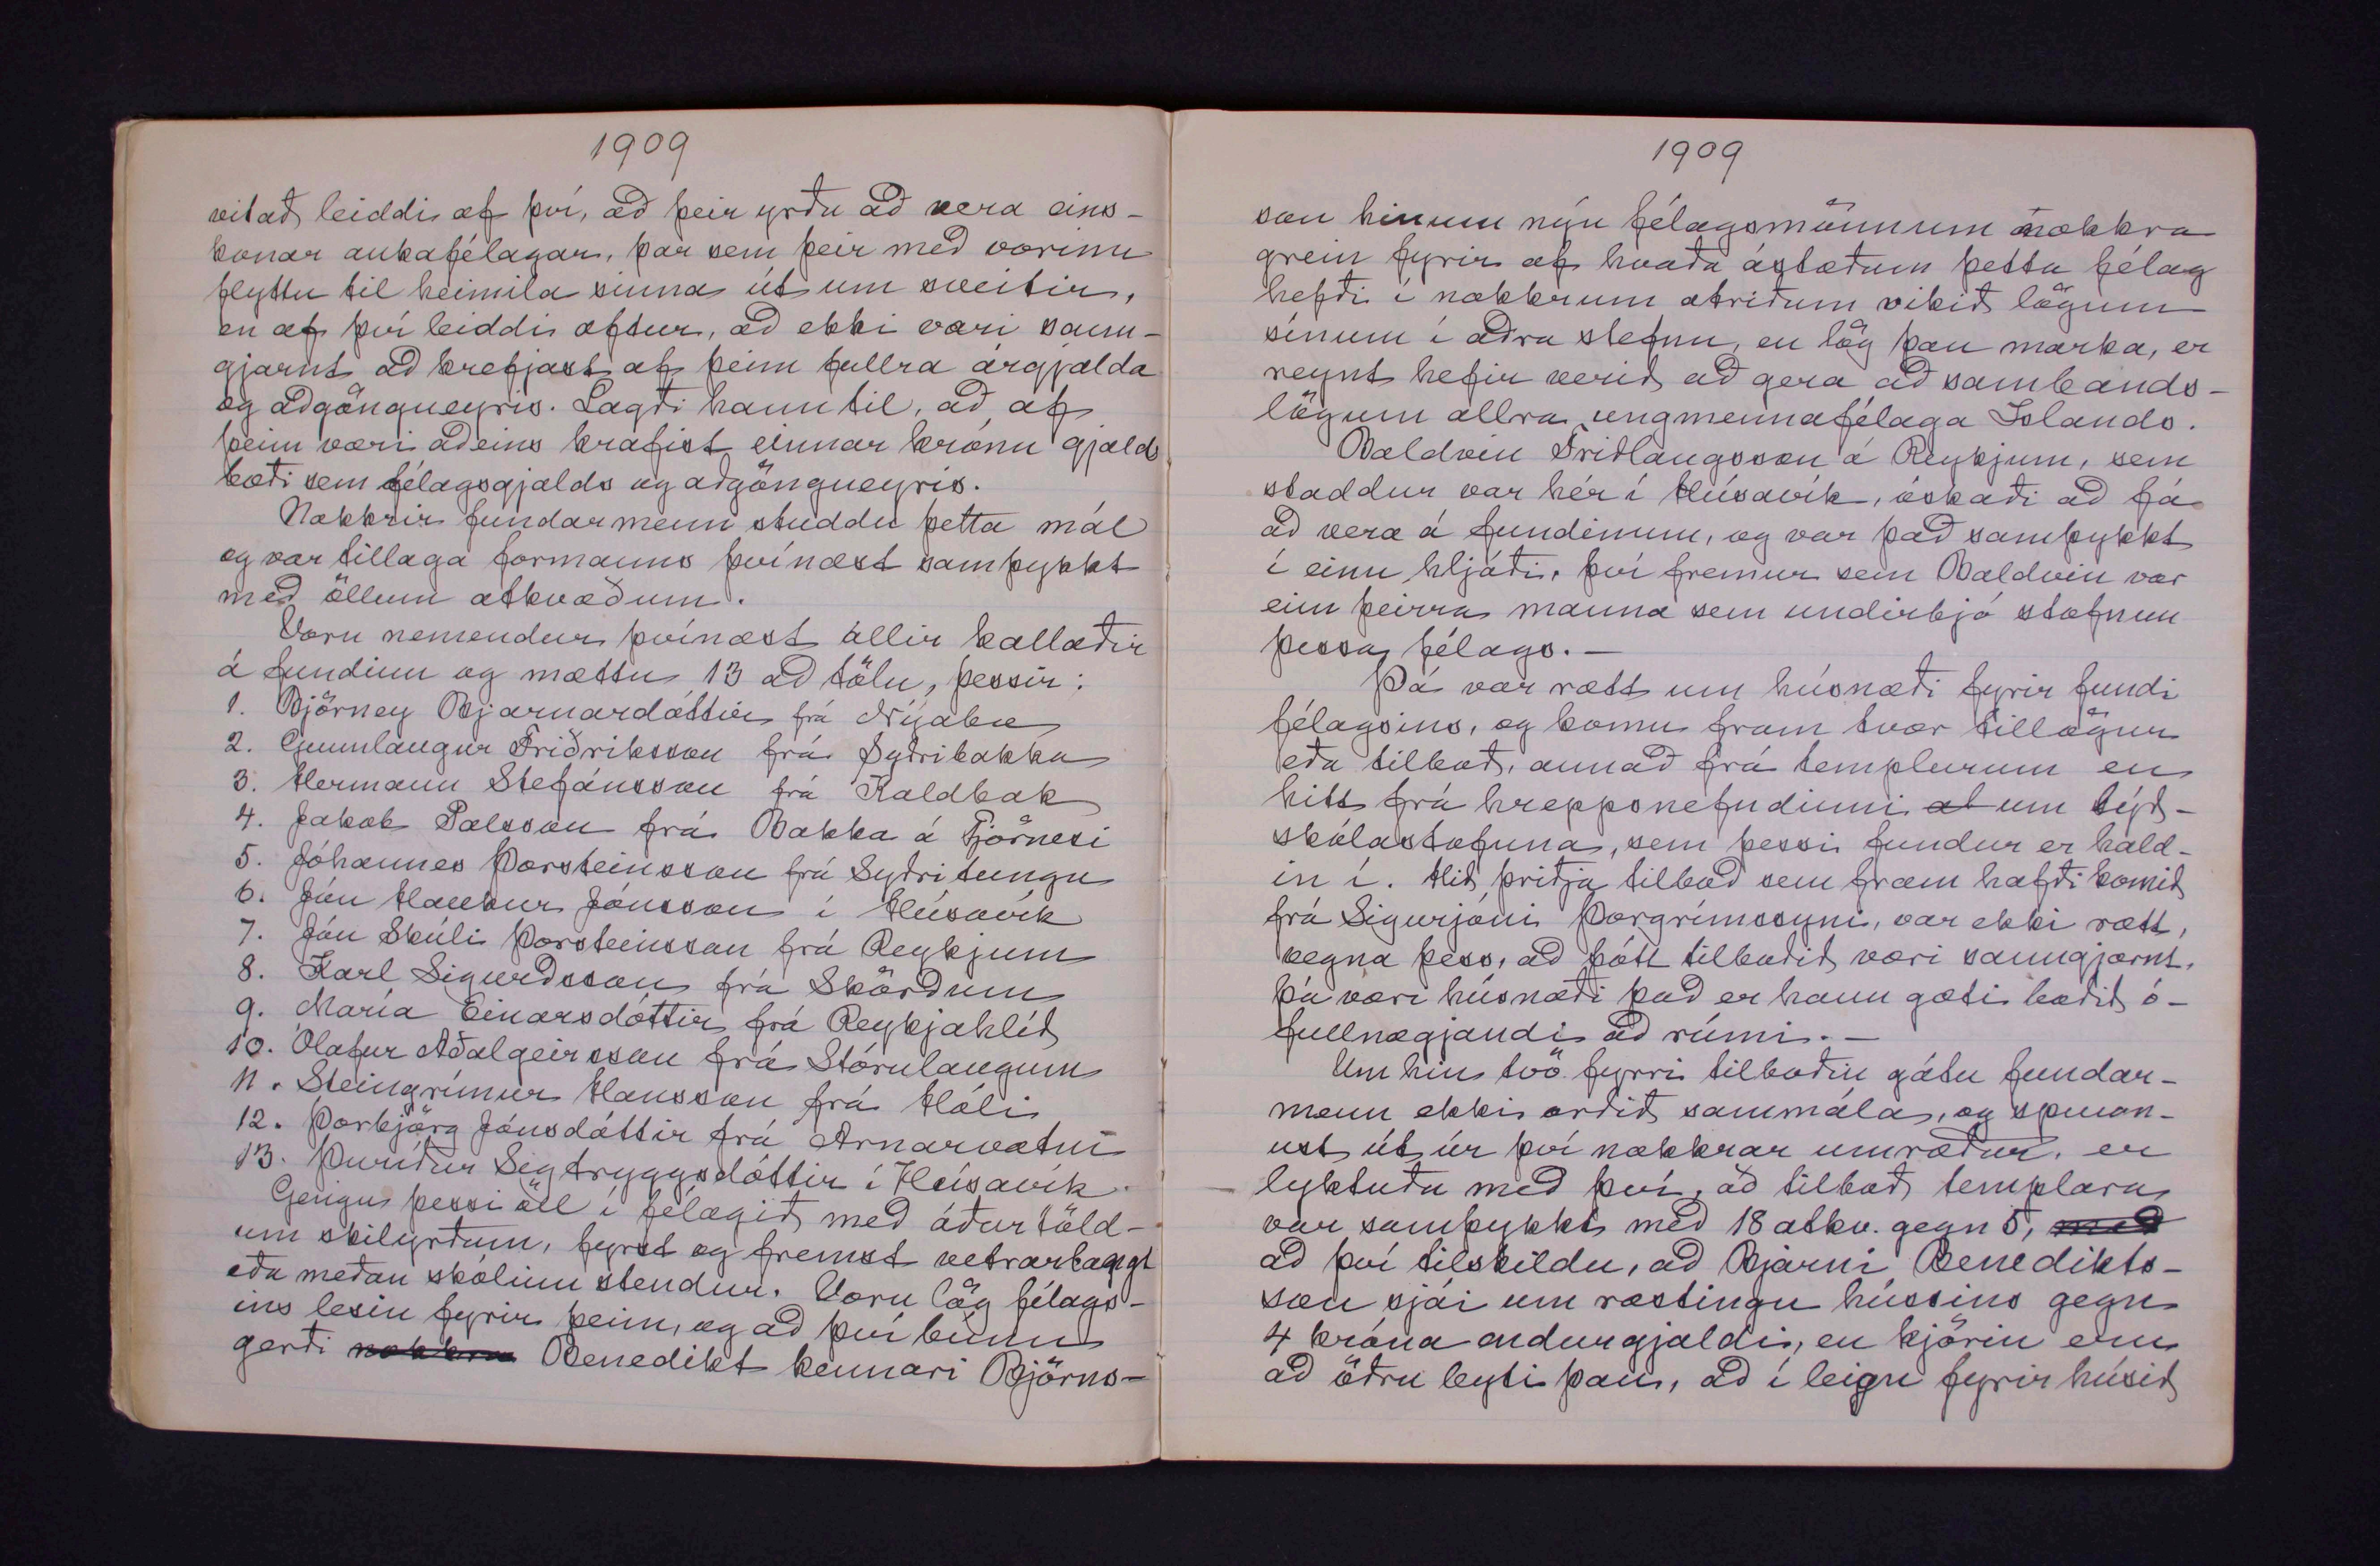 1909
vitað leiddi af því, að þeir yrðu að vera eins-
konar aukafélagar, þar sem þeir með vorinu
flyttu til heimila sinna út um sveitir,
en af því leiddi aftur, að ekki væri sann-
gjarnt að krefjast af þeim fullra árgjalda
og aðgöngueyris. Lagði hann til, að af
þeim væri aðeins krafist einnar krónu gjalds
bæði sem félagsgjalds og aðgöngueyris.
Nokkrir fundarmenn studdu þetta mál
og var tillaga formanns þvínæst samþykkt
með öllum atkvæðum.
Voru nemendur þvínæst allir kallaðir
á fundinn og mættu 13 að tölu, þessir:
1. Björney Bjarnardóttir frá Nýabæ
2. Gunnlaugur Friðriksson frá Sytribakka
3. Hermann Stefánsson frá Kaldbak
4. Jakob Pálsson frá Bakka á Tjörnesi
5. Jóhannes Þorsteinsson frá Syðritungu
6. Jón Haukur Jónsson í Húsavík
7. Jón Skúli Þorsteinsson frá Reykjum
8. Karl Sigurðsson frá Skörðum
9. María Einarsdóttir frá Reykjahlíð
10. Ólafur Aðalgeirsson frá Stórulaugum
11. Steingrímur Hansson frá Hóli
12. Þorbjörg Jónsdóttir frá Arnarvatni
13. Þuríður Sigtryggsdóttir í Húsavík.
Gengu þessi öll í félagið með áðurtöld-
um skilyrðum, fyrst og fremst vetrarlangt
eða meðan skólinn stendur. Voru lög félags-
ins lesin fyrir þeim, og að því búnu
gerði nokkra Benedikt kennari Björns-
1909
son hinum nýu félagsmönnum nokkra
grein fyrir af hvaða ástæðum þetta félag
hefði í nokkrum atriðum vikið lögum
sínum í aðra stefnu, en lög þau marka, er
reynt hefir verið að gera að sambands-
lögum allra ungmennafélaga Íslands.
Baldvin Friðlaugsson á Reykjum, sem
staddur var hér í Húsavík, óskaði að fá
að vera á fundinum, og var það samþykkt
í einu hljóði, því fremur sem Baldvin var
einn þeirra manna sem undirbjó stofnun
þessa félags. —
Þá var rætt um húsnæði fyrir fundi
félagsins, og komu fram tvær tillögur
eða tilboð, annað frá templurum en
hitt frá hreppsnefndinni at um lýð-
skólastofuna, sem þessi fundur er hald-
in í. Hið þriðja tilboð sem fram hafði komið
frá Sigurjóni Þorgrímssyni, var ekki rætt,
vegna þess, að þótt tilboðið væri sanngjarnt,
þá væri húsnæði það er hann gæti boðið ó-
fullnægjandi að rúmi. —
Um hin tvö fyrri tilboðin gátu fundar-
menn ekki orðið sammála, og spunn-
ust út úr því nokkrar umræður, er
lyktuðu með því, að tilboð templara
var samþykkt með 18 atkv. gegn 5, með
að því tilskildu, að Bjarni Benedikts-
son sjái um ræstingu hússins gegn
4 króna endurgjaldi, en kjörin eru
að öðru leyti þau, að í leigu fyrir húsið